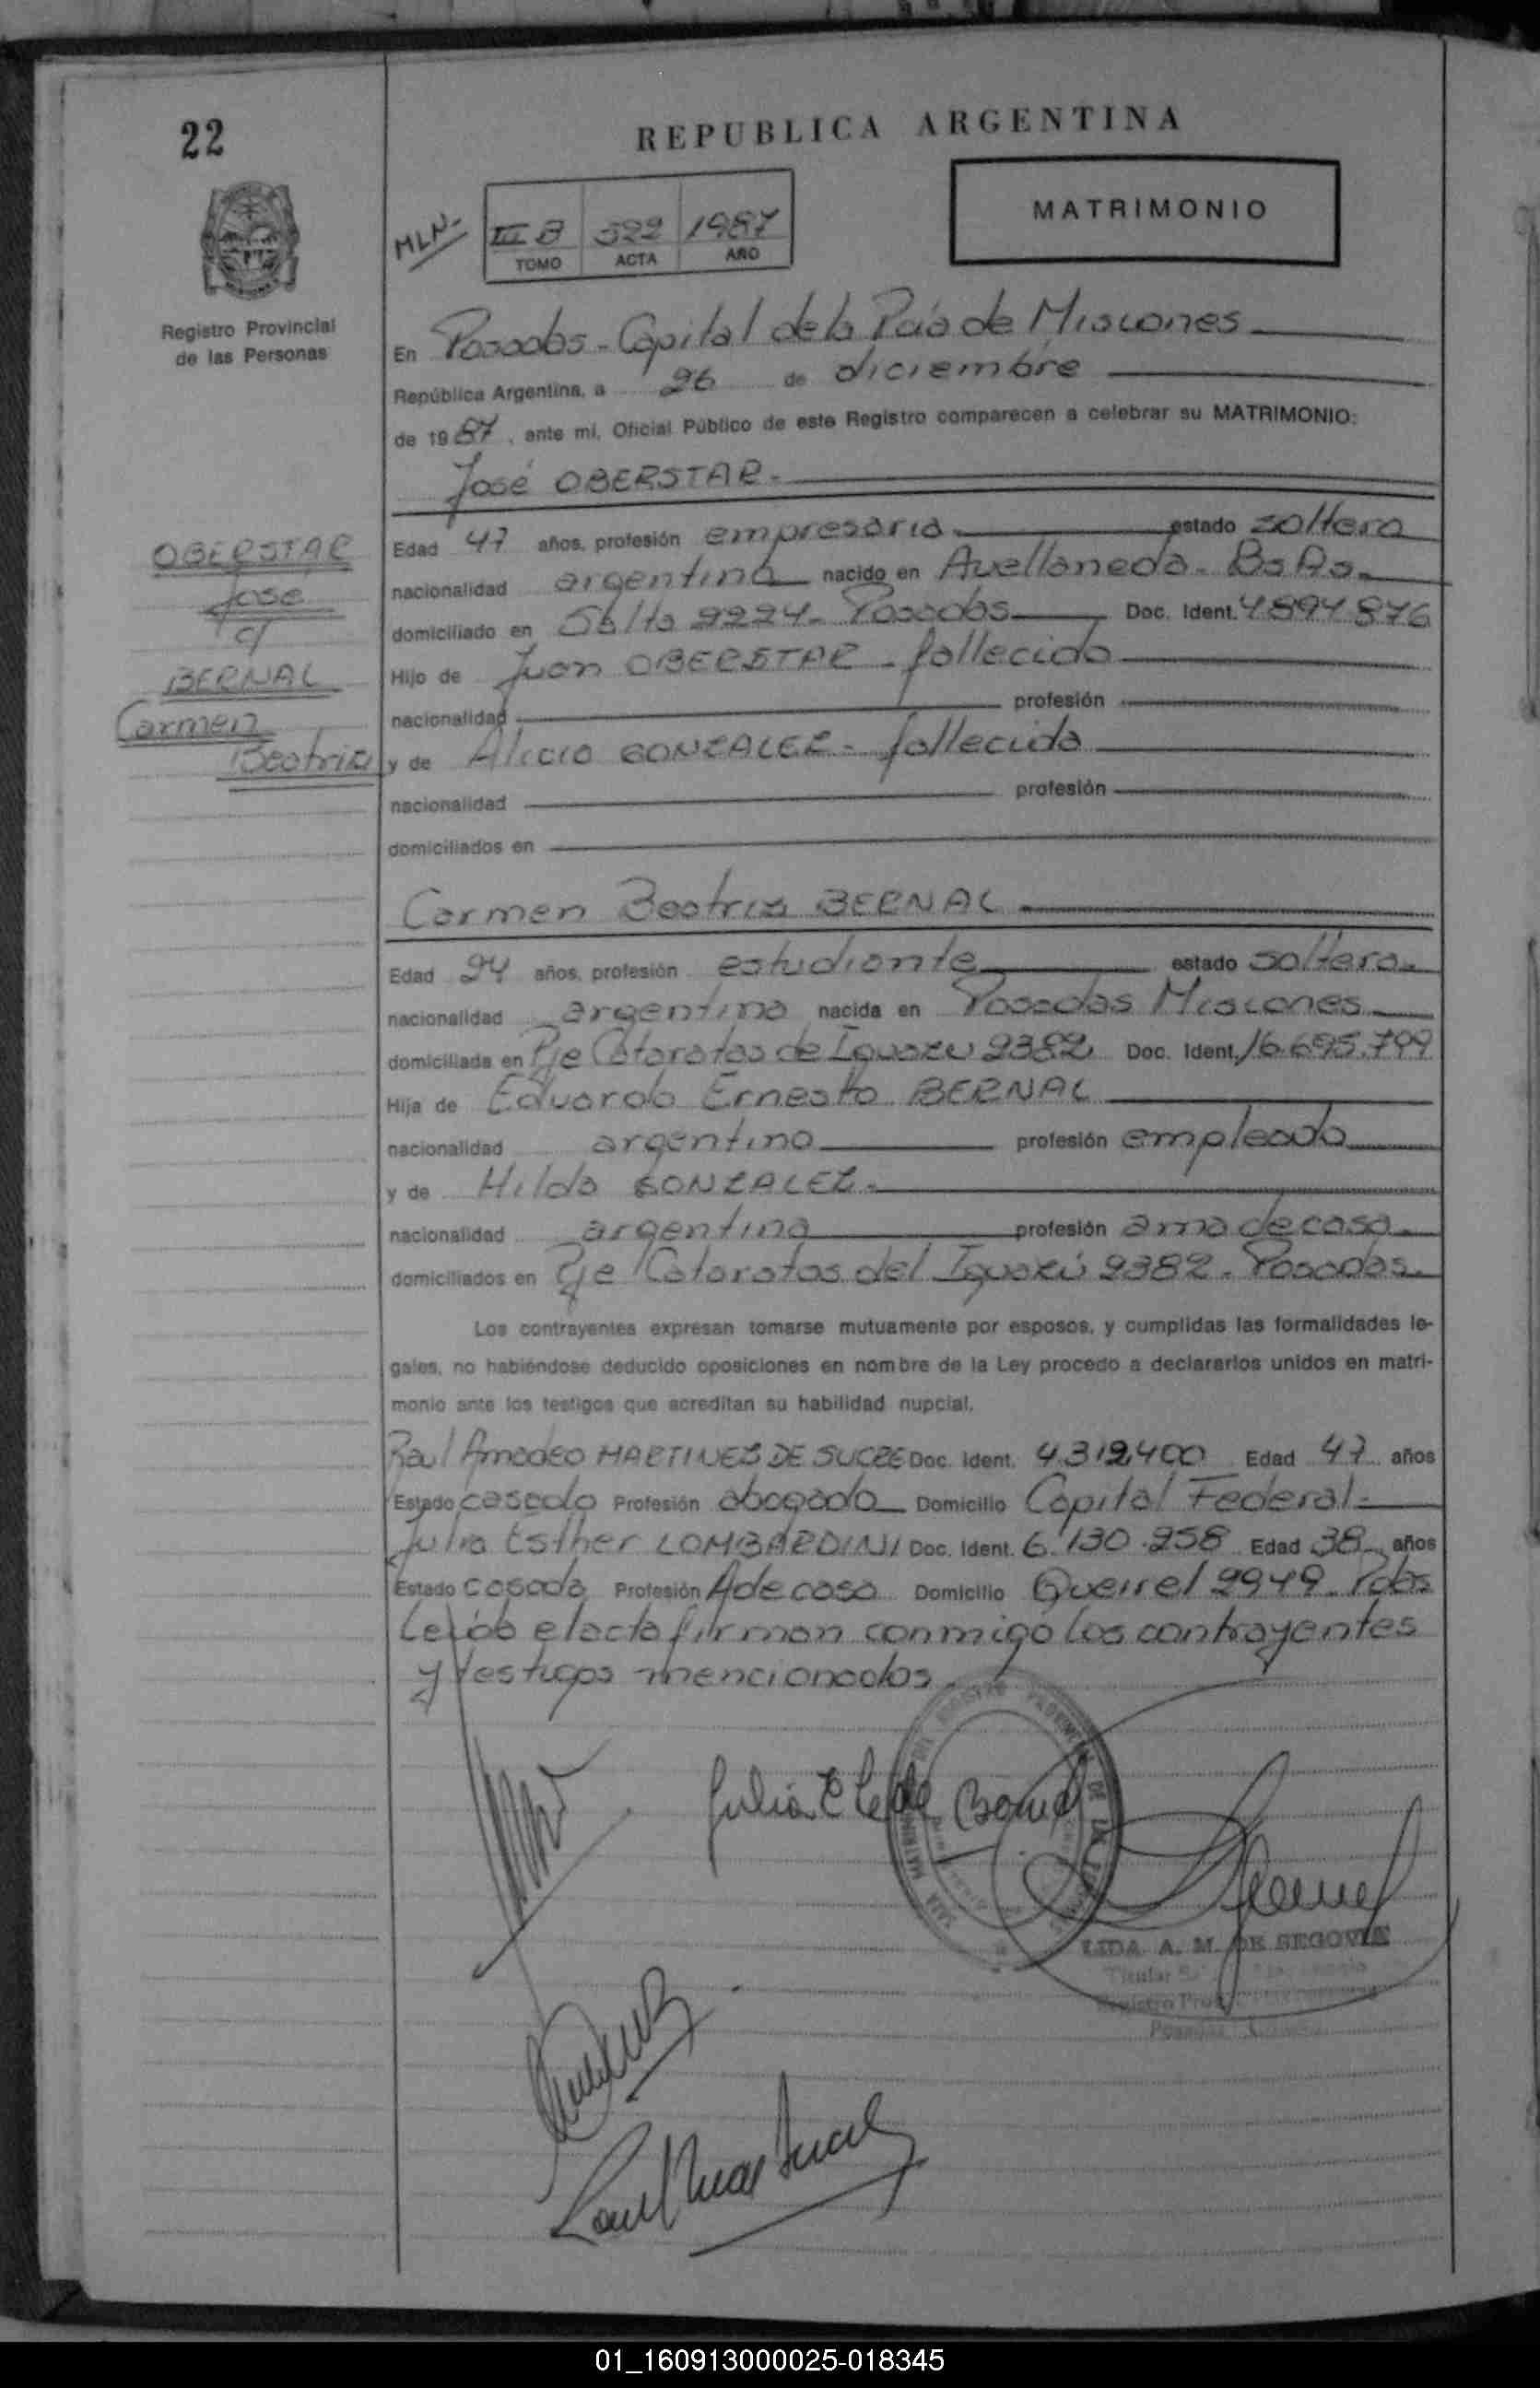 22
REPUBLICA ARGENTINA
MATRIMONIO
MLN-
III B 522 1987
TOMO ACTA AÑO
Registro Provincial
de las Personas
En Posadas - Capital de la Pcia de Misiones
República Argentina, a 26 de diciembre
de 1987, ante mi, Oficial Público de este Registro comparecen a celebrar su MATRIMONIO:
José OBERSTAR.-
OBERSTAR
José
c/
BERNAL
Carmen
Beatriz
Edad 47 años, profesión empresario estado soltero
nacionalidad argentina nacido en Avellaneda - Bs As.
domiciliado en Salta 2224 - Posadas Doc. Ident. 4894876
Hijo de Juan OBERSTAR - fallecido
nacionalidad profesión
y de Alicia GONZALEZ - fallecida
nacionalidad profesión
domiciliados en
Carmen Beatriz BERNAL
Edad 24 años, profesión estudiante estado soltera.
nacionalidad argentina nacida en Posadas Misiones
domiciliada en Pje Cataratas de Iguazu 2382 Doc. Ident. 16.695.799
Hija de Eduardo Ernesto BERNAL
nacionalidad argentino profesión empleado
y de Hilda GONZALEZ.-
nacionalidad argentina profesión ama de casa.
domiciliados en Pje Cataratas del Iguazú 2382 - Posadas.
Los contrayentes expresan tomarse mutuamente por esposos, y cumplidas las formalidades le-
gales, no habiéndose deducido oposiciones en nombre de la Ley procedo a declararlos unidos en matri-
monio ante los testigos que acreditan su habilidad nupcial.
Raul Amadeo MARTINEZ DE SUCRE Doc. Ident. 4.312.400 Edad 47 años
Estado casado Profesión abogado Domicilio Capital Federal.-
Julia Esther LOMBARDINI Doc. Ident. 6.130.258 Edad 38 años
Estado casada Profesión A de casa Domicilio Queirel 2949 - Pdas
Leída el acta firman conmigo los contrayentes
y testigos mencionados
Julia E L de
LIDA A. M. DE SEGOVIA
Titular
Registro
01_160913000025-018345